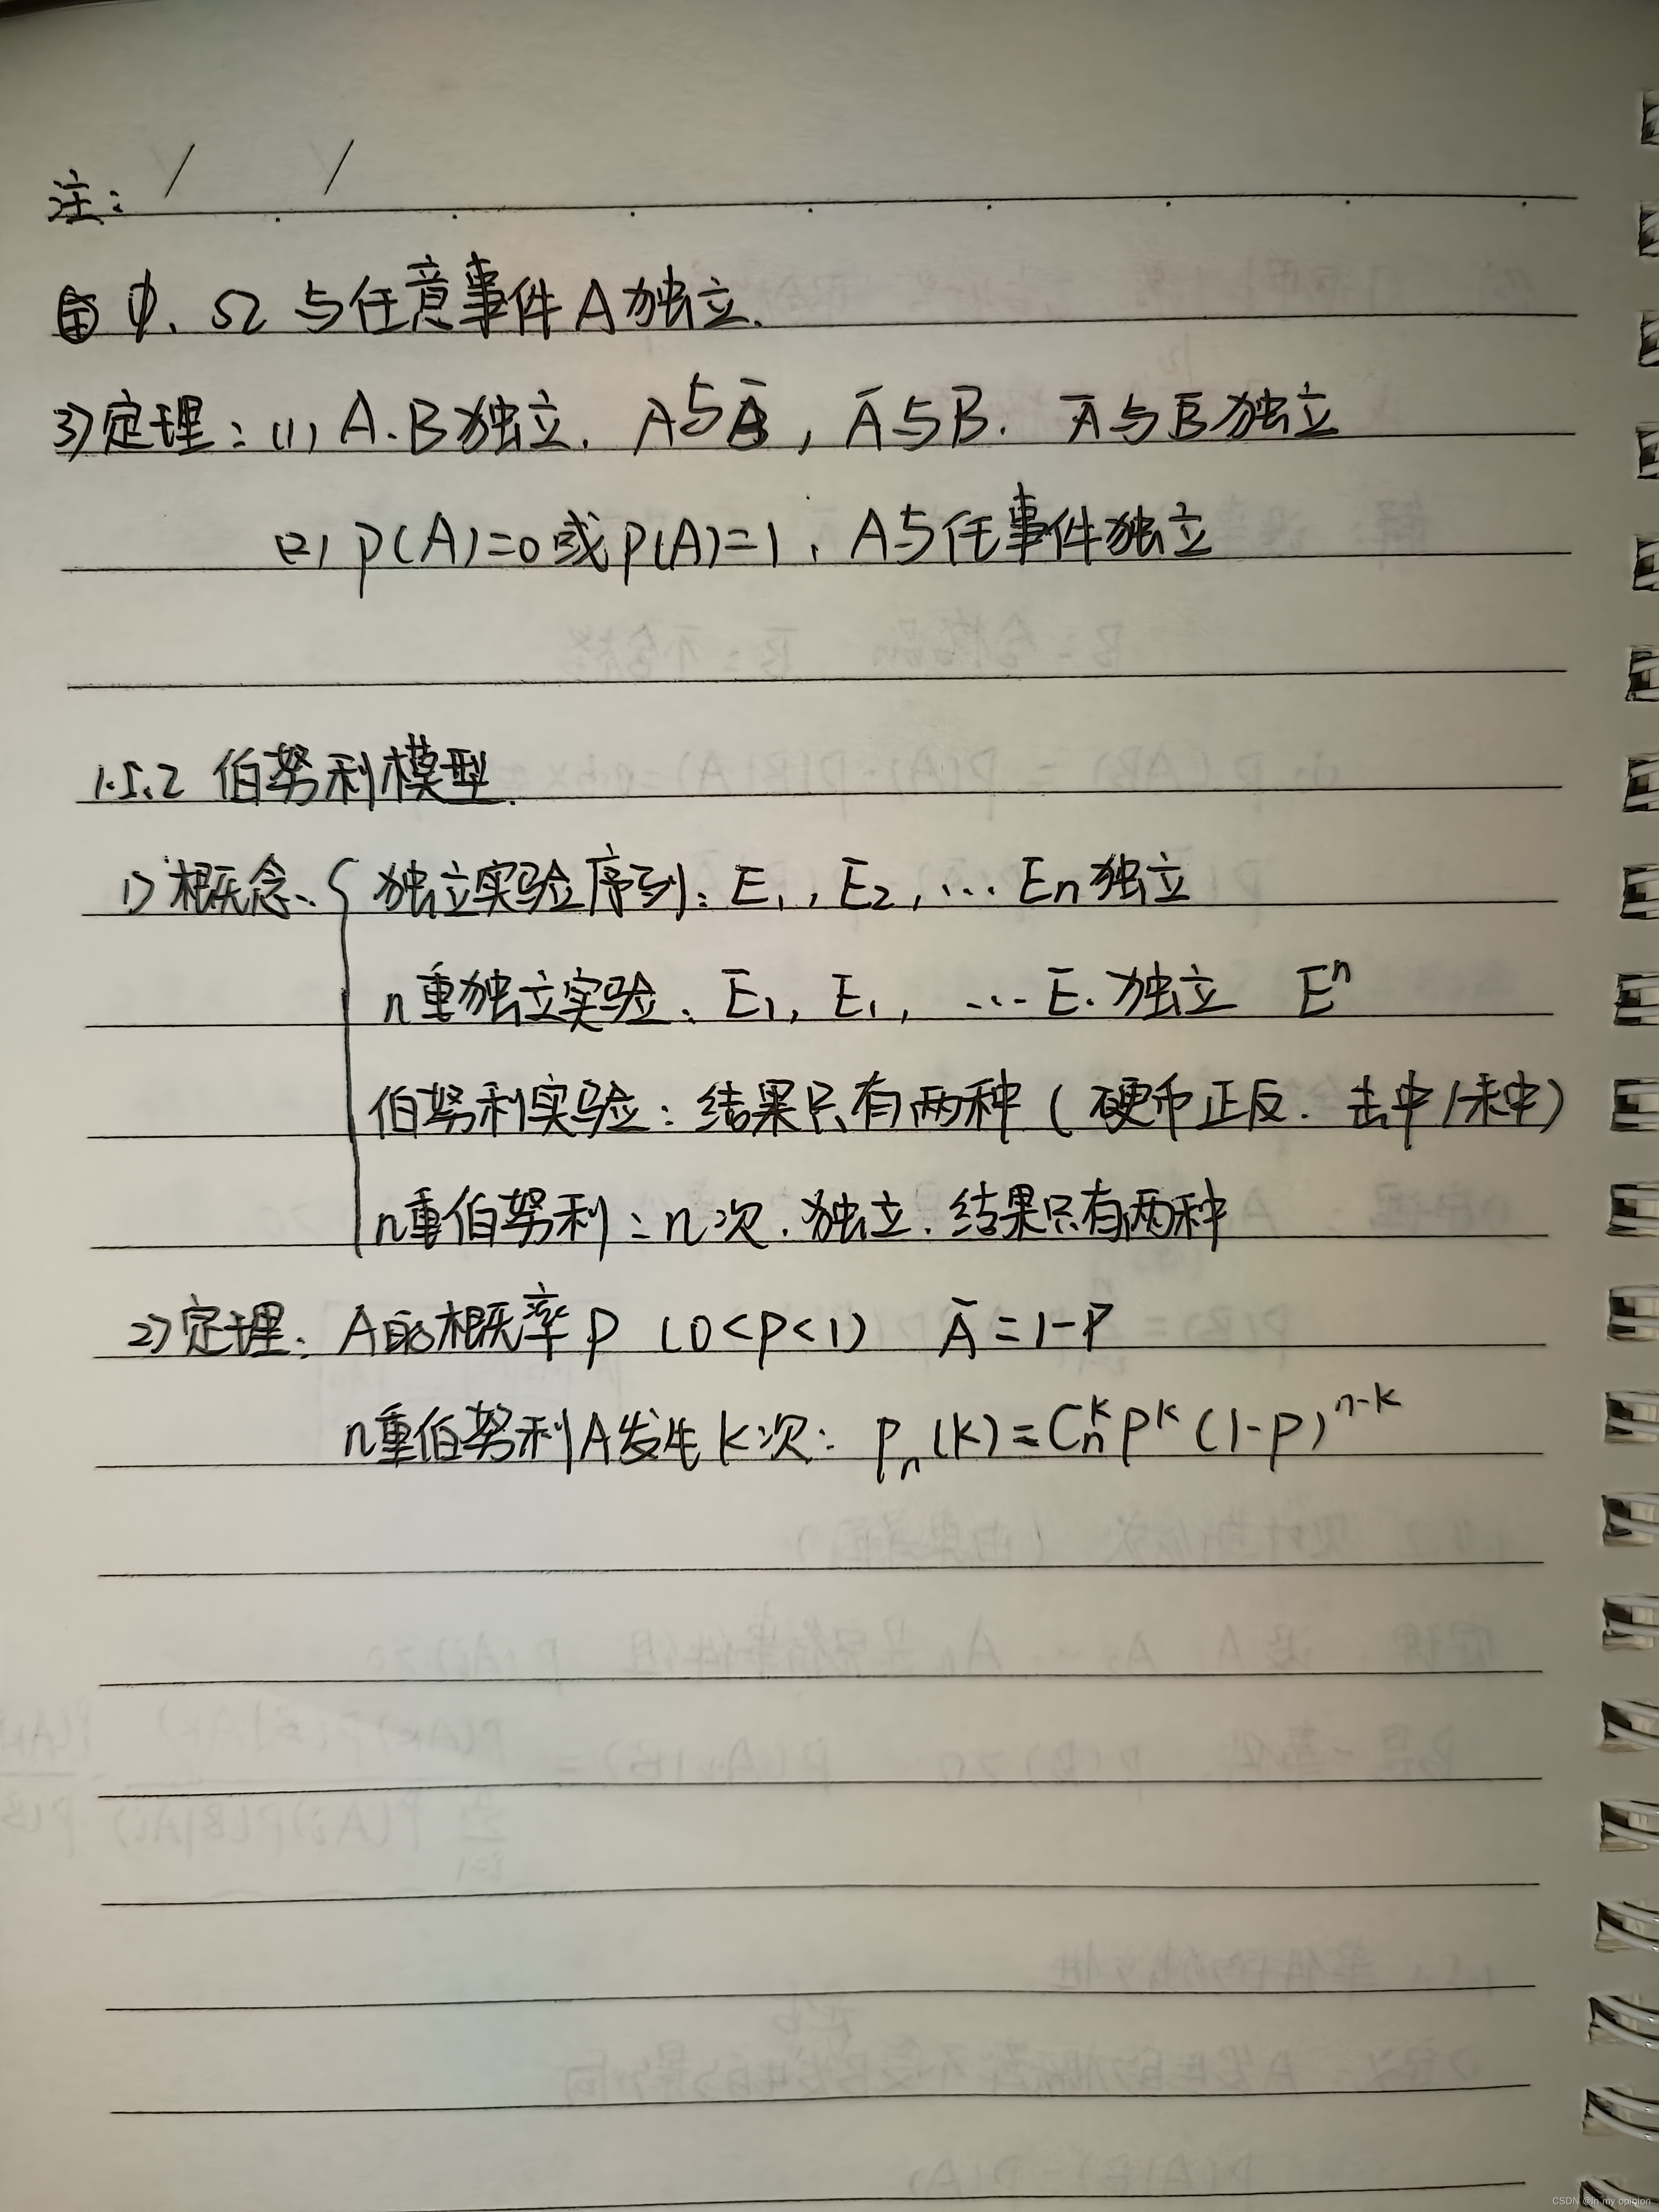 注:
Φ. Ω 与任意事件A独立.
3)定理:(1) A.B独立. A与B̄, Ā与B. Ā与B̄独立
(2) P(A)=0或P(A)=1, A与任事件独立
1.5.2 伯努利模型.
1)概念、{ 独立实验序列: E₁, E₂, … En独立
n重独立实验: E₁, E₁, … E. 独立 Eⁿ
伯努利实验: 结果只有两种 ( 硬币正反. 击中/未中)
n重伯努利: n次. 独立. 结果只有两种
2)定理: A的概率P (0<P<1) Ā=1-P
n重伯努利A发生k次: Pₙ(k)=Cₙᵏ Pᵏ (1-P)ⁿ⁻ᵏ
CSDN @in my opinion